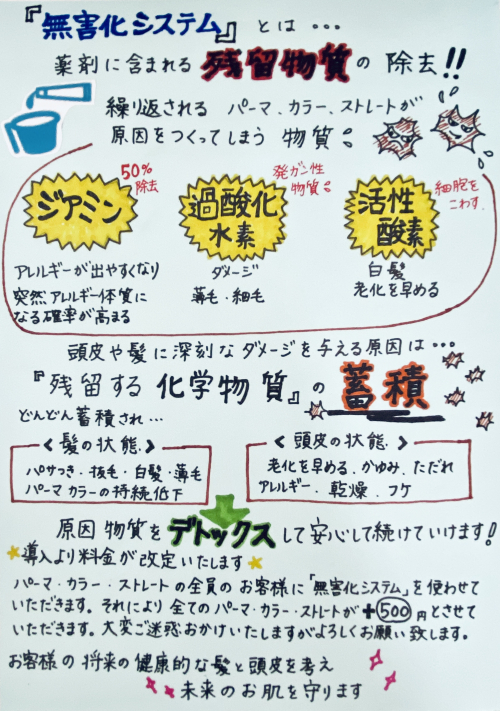 『無害化システム』とは…
薬剤に含まれる 残留物質の 除去!!
繰り返される パーマ、カラー、ストレートが
原因をつくってしまう 物質
ジアミン
50%
除去
過酸化
水素
発ガン性
物質
活性
酸素
細胞を
こわす
アレルギーが出やすくなり
突然アレルギー体質に
なる確率が高まる
ダメージ
薄毛・細毛
白髪
老化を早める
頭皮や髪に深刻なダメージを与える原因は…
『残留する 化学物質』の 蓄積
どんどん蓄積され…
＜髪の状態＞
パサつき・抜毛・白髪・薄毛
パーマ カラーの持続低下
＜頭皮の状態＞
老化を早める、かゆみ、ただれ
アレルギー、乾燥、フケ
原因 物質を デトックスして安心して続けていけます!
導入より料金が改定いたします
パーマ・カラー・ストレートの全員のお客様に「無害化システム」を使わせて
いただきます。それにより 全てのパーマ・カラー・ストレートが +500円とさせて
いただきます。大変ご迷惑おかけいたしますがよろしくお願い致します。
お客様の 将来の健康的な髪と頭皮を考え
未来のお肌を守ります